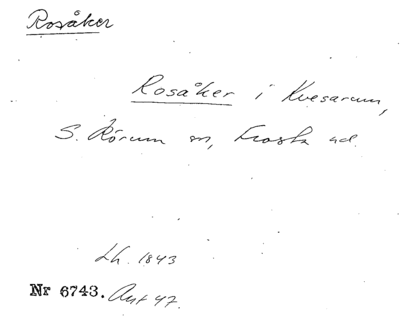 Rosåker
Rosåker i Kvesarum,
S. Rörum sn, Frosta hd.
Lh. 1843
Nr 6743. Ant 47.